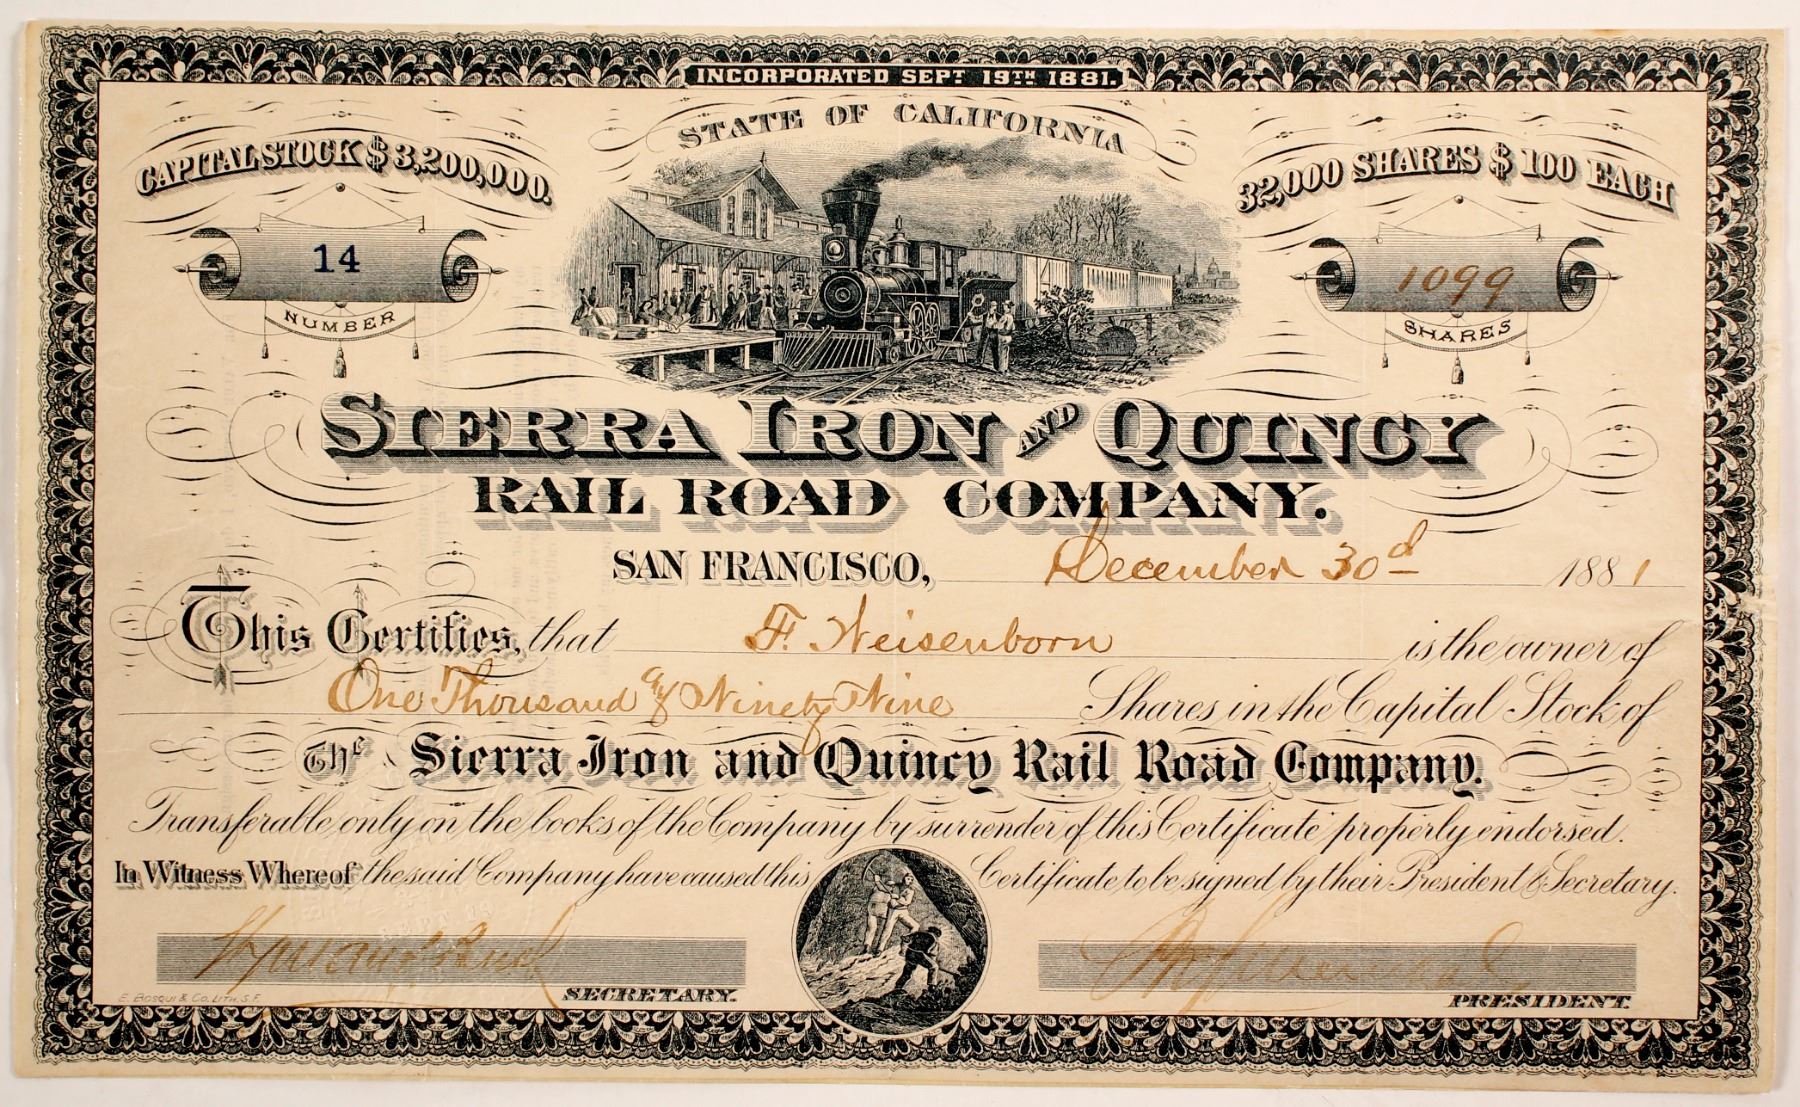 INCORPORATED SEPT 19TH 1881.
STATE OF CALIFORNIA
CAPITAL STOCK $3,200,000.
32,000 SHARES $100 EACH
14
NUMBER
1099
SHARES
SIERRA IRON AND QUINCY
RAIL ROAD COMPANY.
SAN FRANCISCO, December 30d 1881
This Certifies, that F. Weisenborn is the owner of
One Thousand & Ninety Nine Shares in the Capital Stock of
The Sierra Iron and Quincy Rail Road Company.
Transferable only on the books of the Company by surrender of this Certificate properly endorsed.
In Witness Whereof the said Company have caused this Certificate to be signed by their President & Secretary.
SECRETARY.
PRESIDENT.
E. BOSQUI & CO. LITH. S.F.